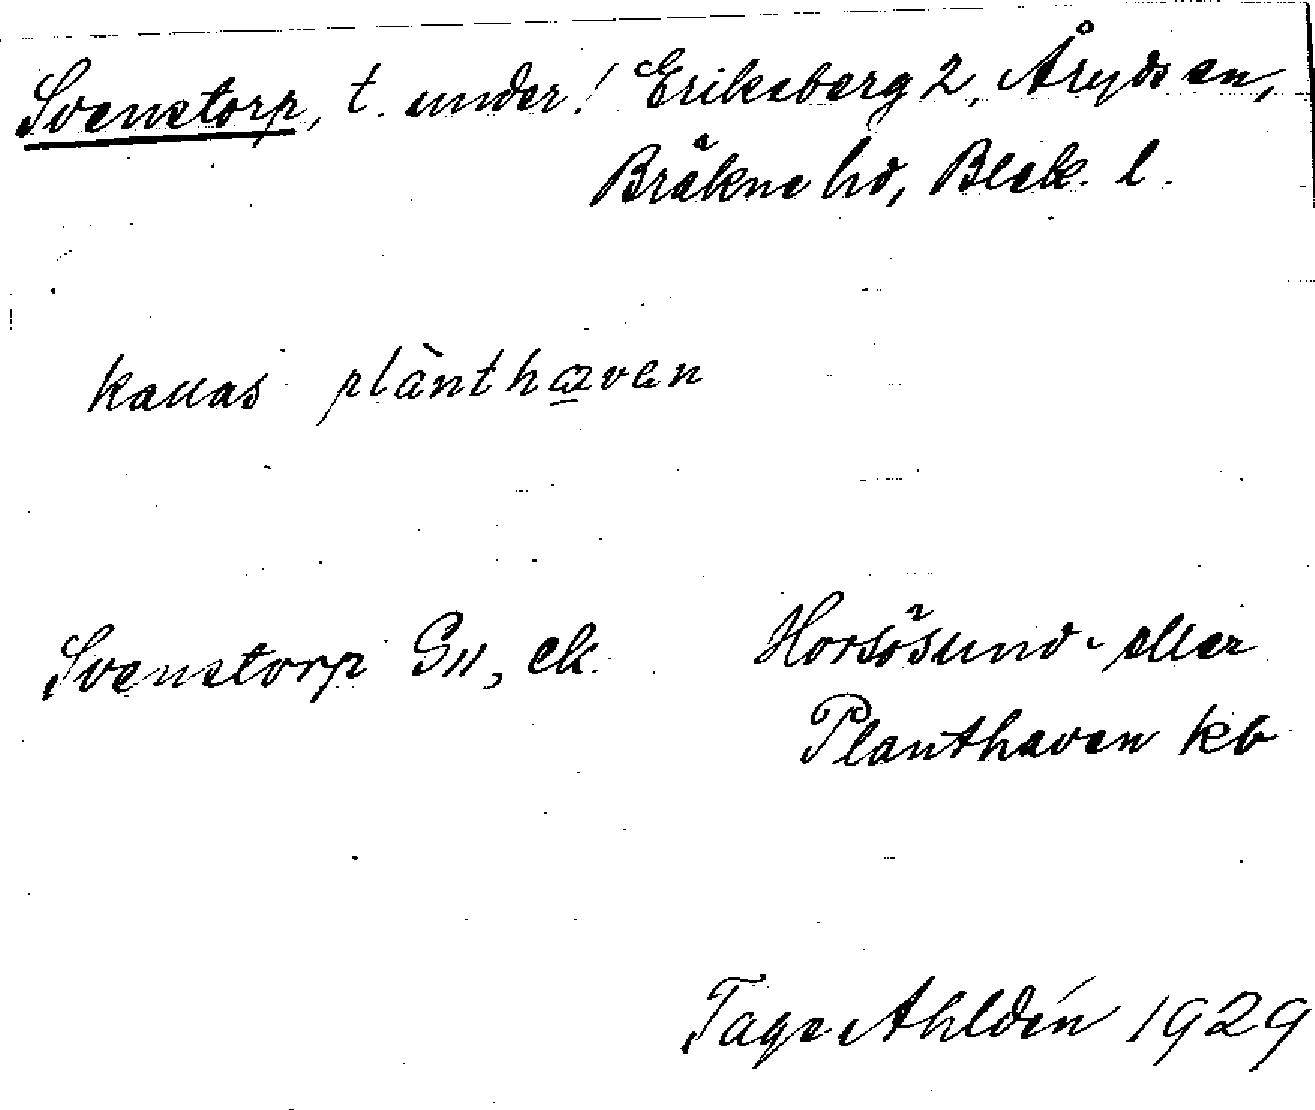 Svenstorp, t. under! Eriksberg 2, Åryds sn,
Bräkne hd, Blek. l.
kallas plànthavan
Svenstorp GII, ek. Horsösund- eller
Planthaven kb
Tage Ahldén 1929